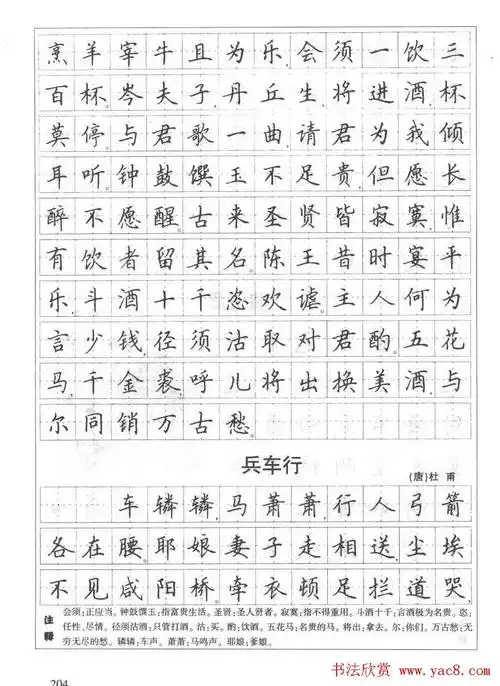 烹羊宰牛且为乐,会须一饮三
百杯。岑夫子,丹丘生,将进酒,杯
莫停。与君歌一曲,请君为我倾
耳听。钟鼓馔玉不足贵,但愿长
醉不愿醒。古来圣贤皆寂寞,惟
有饮者留其名。陈王昔时宴平
乐,斗酒十千恣欢谑。主人何为
言少钱,径须沽取对君酌。五花
马,千金裘,呼儿将出换美酒,与
尔同销万古愁。
兵车行
(唐)杜 甫
车辚辚,马萧萧,行人弓箭
各在腰。耶娘妻子走相送,尘埃
不见咸阳桥。牵衣顿足拦道哭,
注释
会须:正应当。钟鼓馔玉:指富贵生活。圣贤:圣人贤者。寂寞:指不得重用。斗酒十千:言酒极为名贵。恣:
任性、尽情。径须沽酒:只管打酒。沽:买。酌:饮酒。五花马:名贵的马。将出:拿去。尔:你们。万古愁:无
穷无尽的愁。辚辚:车声。萧萧:马鸣声。耶娘:爹娘。
204
书法欣赏
www.yac8.com